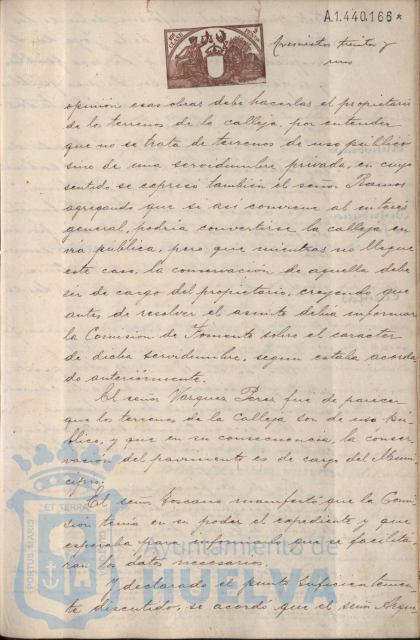 A.1.440.166*
treinta y
uno
opinión esas obras debe hacerlas el propietario
de los terrenos de la calleja, por entender
que no se trata de terrenos de uso público
sino de una servidumbre privada, en cuyo
sentido se expresó también el señor Ramos
agregando que si asi conviene al interés
general, podría convertirse la calleja en
vía pública, pero que mientras no llegue
este caso, la conservación de aquella debe
ser de cargo del propietario, creyendo que
antes de resolver el asunto debía informar
la Comisión de Fomento sobre el carácter
de dicha servidumbre, segun estaba acorda
do anteriormente.
El señor Vazquez Perez fué de parecer
que los terrenos de la calleja son de uso pú-
blico, y que en su consecuencia, la conser-
vación del pavimento es de cargo del Muni
cipio.
El señor Toscano manifestó que la Comi
sión tenía en su poder el expediente y que
esperaba para informarlo que se facilita-
ran los datos necesarios.
Y declarado el punto suficientemen
te discutido, se acordó que el señor
PORTUS MARIS
ET TERRAE
Ayuntamiento de
HUELVA